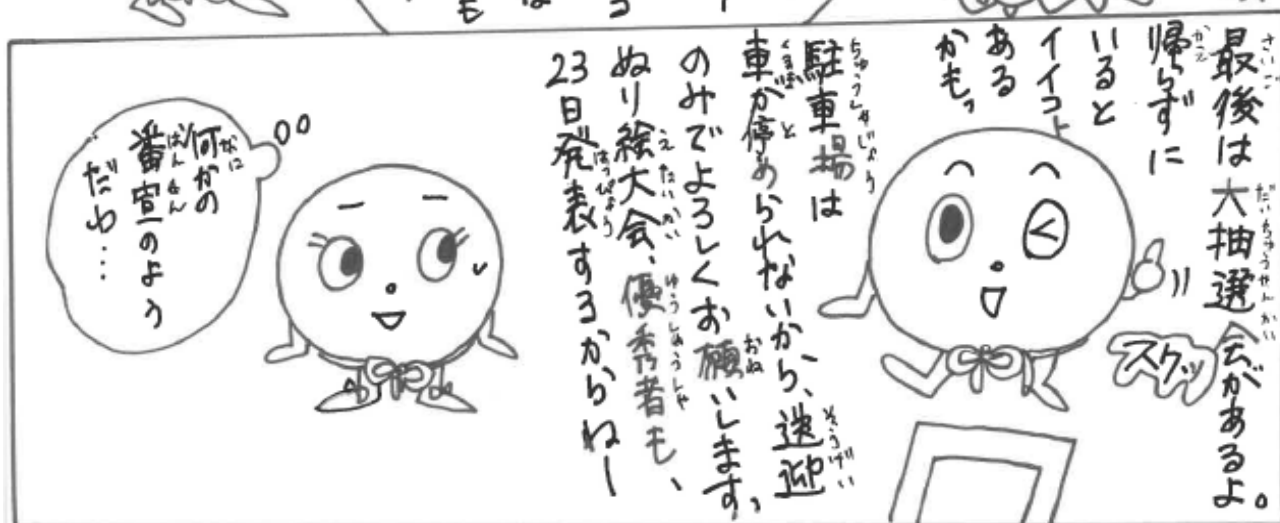 最後は大抽選会があるよ。
帰らずに
いると
イイコト
ある
かも。
駐車場は
車が停められないから、送迎
のみでよろしくお願いします。
ぬり絵大会、優秀者も、
23日発表するからねー
スクッ
何かの
番宣のよう
だわ・・・